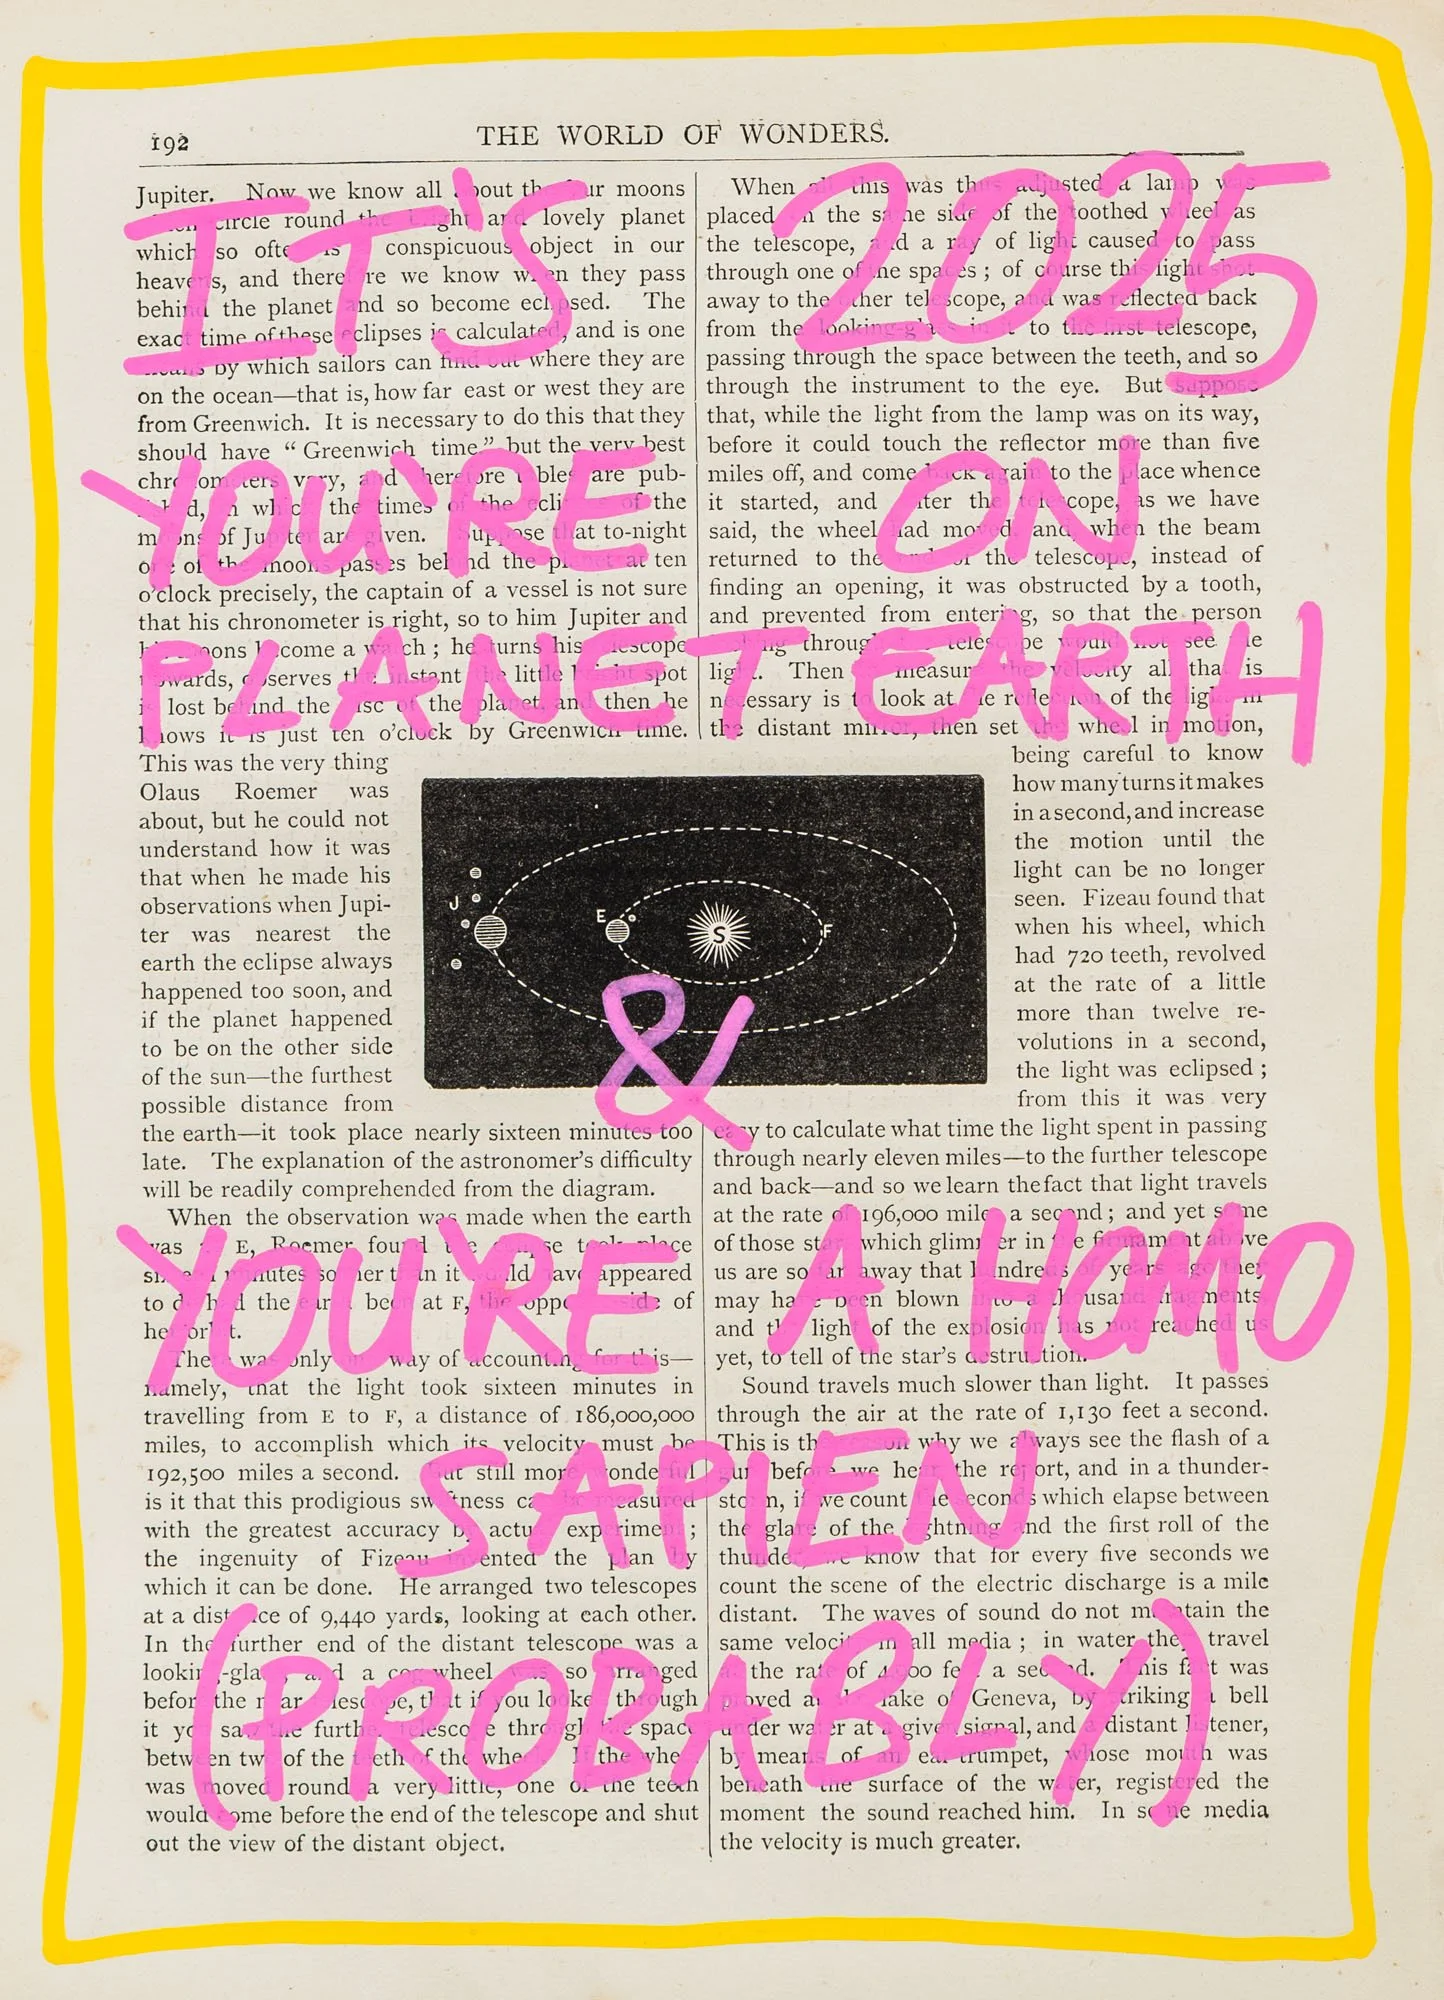 192
THE WORLD OF WONDERS.
IT'S 2025
YOU'RE ON
PLANET EARTH
&
YOU'RE A HOMO
SAPIEN
(PROBABLY)
Jupiter. Now we know all about the four moons
circle round the bright and lovely planet
which so often is conspicuous object in our
heavens, and therefore we know when they pass
behind the planet and so become eclipsed. The
exact time of these eclipses is calculated, and is one
means by which sailors can find out where they are
on the ocean—that is, how far east or west they are
from Greenwich. It is necessary to do this that they
should have “Greenwich time,” but the very best
chronometers vary, and therefore tables are pub-
lished, in which the times of the eclipses of the
moons of Jupiter are given. Suppose that to-night
one of the moons passes behind the planet at ten
o'clock precisely, the captain of a vessel is not sure
that his chronometer is right, so to him Jupiter and
his moons become a watch; he turns his telescope
towards, observes the instant the little bright spot
is lost behind the disc of the planet, and then he
knows it is just ten o'clock by Greenwich time.
This was the very thing
Olaus Roemer was
about, but he could not
understand how it was
that when he made his
observations when Jupi-
ter was nearest the
earth the eclipse always
happened too soon, and
if the planet happened
to be on the other side
of the sun—the furthest
possible distance from
the earth—it took place nearly sixteen minutes too
late. The explanation of the astronomer's difficulty
will be readily comprehended from the diagram.
When the observation was made when the earth
was at E, Roemer found the eclipse took place
sixteen minutes sooner than it would have appeared
to do had the earth been at F, the opposite side of
her orbit.
There was only one way of accounting for this—
namely, that the light took sixteen minutes in
travelling from E to F, a distance of 186,000,000
miles, to accomplish which its velocity must be
192,500 miles a second. But still more wonderful
is it that this prodigious swiftness can be measured
with the greatest accuracy by actual experiment;
the ingenuity of Fizeau invented the plan by
which it can be done. He arranged two telescopes
at a distance of 9,440 yards, looking at each other.
In the further end of the distant telescope was a
looking-glass, and a cog-wheel was so arranged
before the near telescope, that if you looked through
it you saw the further telescope through the space
between two of the teeth of the wheel. If the wheel
was moved round a very little, one of the teeth
would come before the end of the telescope and shut
out the view of the distant object.
J
E
S
F
When all this was thus adjusted a lamp was
placed on the same side of the toothed wheel as
the telescope, and a ray of light caused to pass
through one of the spaces; of course this light shot
away to the other telescope, and was reflected back
from the looking-glass in it to the first telescope,
passing through the space between the teeth, and so
through the instrument to the eye. But suppose
that, while the light from the lamp was on its way,
before it could touch the reflector more than five
miles off, and come back again to the place whence
it started, and after the telescope, as we have
said, the wheel had moved, and, when the beam
returned to the end of the telescope, instead of
finding an opening, it was obstructed by a tooth,
and prevented from entering, so that the person
looking through the telescope would not see the
light. Then to measure the velocity all that is
necessary is to look at the reflection of the light in
the distant mirror, then set the wheel in motion,
being careful to know
how many turns it makes
in a second, and increase
the motion until the
light can be no longer
seen. Fizeau found that
when his wheel, which
had 720 teeth, revolved
at the rate of a little
more than twelve re-
volutions in a second,
the light was eclipsed;
from this it was very
easy to calculate what time the light spent in passing
through nearly eleven miles—to the further telescope
and back—and so we learn the fact that light travels
at the rate of 196,000 miles a second; and yet some
of those stars which glimmer in the firmament above
us are so far away that hundreds of years ago they
may have been blown into a thousand fragments,
and the light of the explosion has not reached us
yet, to tell of the star's destruction.
Sound travels much slower than light. It passes
through the air at the rate of 1,130 feet a second.
This is the reason why we always see the flash of a
gun before we hear the report, and in a thunder-
storm, if we count the seconds which elapse between
the glare of the lightning and the first roll of the
thunder, we know that for every five seconds we
count the scene of the electric discharge is a mile
distant. The waves of sound do not maintain the
same velocity in all media; in water they travel
at the rate of 4,900 feet a second. This fact was
proved at the lake of Geneva, by striking a bell
under water at a given signal, and a distant listener,
by means of an ear trumpet, whose mouth was
beneath the surface of the water, registered the
moment the sound reached him. In some media
the velocity is much greater.